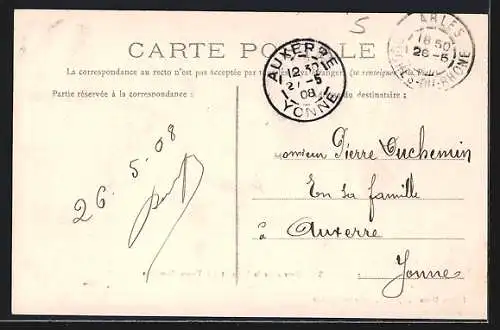 5
ARLES
18 50
26-5
BCHES-DU-RHONE
CARTE POSTALE
AUXERRE
12 30
27-5
08
YONNE
La correspondance au recto n'est pas acceptée par
Partie réservée à la correspondance :
du destinataire :
26.5.08
Monsieur Pierre Duchemin
En sa famille
à Auxerre
Yonne